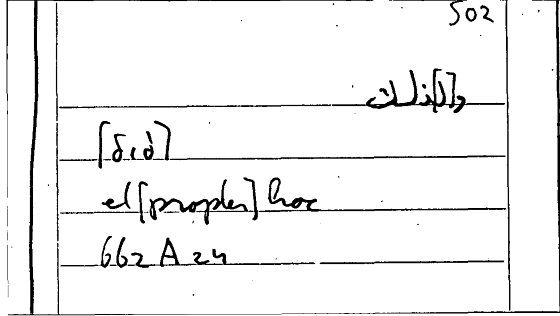 502
و[ل]ذلك
[διὸ]
et [propter] hoc
662 A 24